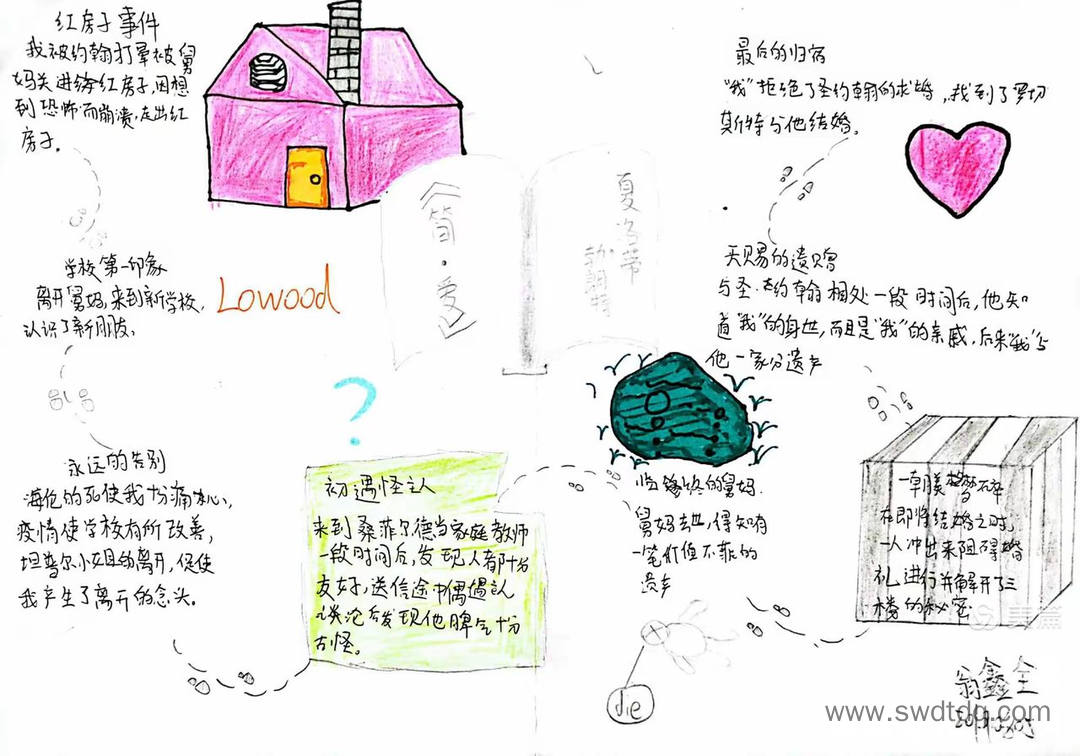 红房子事件
我被约翰打晕被舅
妈关进红房子,因想
到恐怖而崩溃,走出红
房子。
学校第一印象
离开舅妈,来到新学校,
认识了新朋友,
Lowood
永远的告别
海伦的死使我十分痛心,
疫情使学校有所改善,
坦普尔小姐的离开,促使
我产生了离开的念头。
?
初遇怪主人
来到桑菲尔德当家庭教师
一段时间后,发现人都十分
友好,送信途中偶遇主人
谈论后发现他脾气十分
古怪。
《简·爱》
夏洛蒂
勃朗特
临终的舅妈
舅妈去世,得知有
一笔价值不菲的
遗产
die
一朝美梦碎
在即将结婚之时,
一人冲出来阻碍婚
礼进行并解开了三
楼的秘密
天赐的遗赠
与圣·约翰相处一段时间后,他知
道“我”的身世,而且是“我”的亲戚,后来“我”与
他一家分遗产
最后的归宿
“我”拒绝了圣约翰的求婚,,找到了罗切
斯特与他结婚。
美篇
翁鑫全
www.swdtdq.com